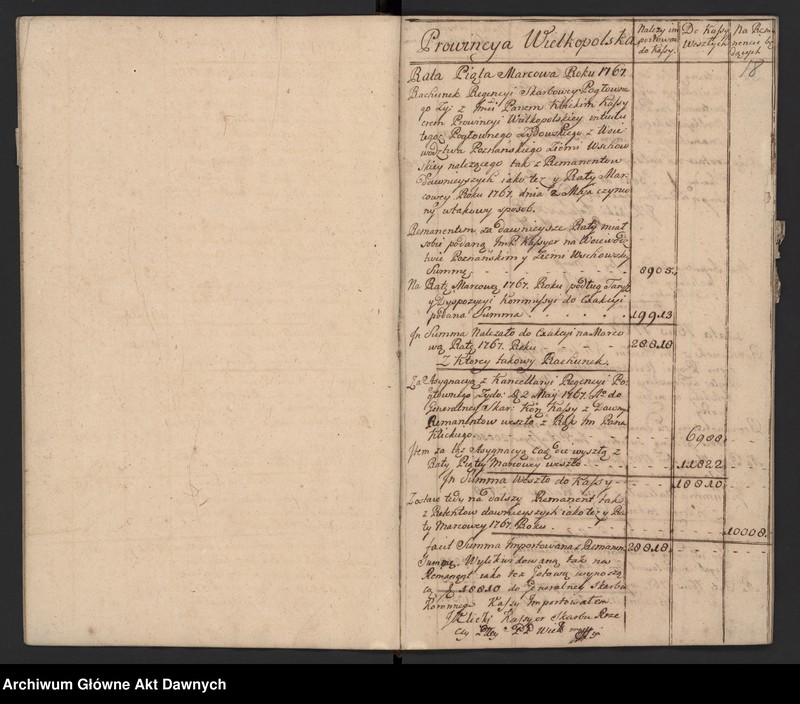 Prowincya Wielkopolska
Należy im
portować
do Kassy.
Do Kassy
Weszłych
Na Rem
nencie bę
dących
18
Rata Piąta Marcowa Roku 1767.
Rachunek Regencyi Skarbowey Pogłowne
go Zyd: z Jmci Panem Klickim Kassy
erem Prowincyi Wielkopolskiey intuitu
tegoż Pogłownego Zydowskiego z Woie
wodztwa Poznańskiego Ziemi Wschow
skiey należącego tak z Remanentow
Dawnieyszych iako też y Raty Mar
cowey Roku 1767. dnia 2 Maja czynio
ny w takowy sposob.
Remanentem za dawnieysze Raty miał
sobie podaną ImP. Kassyer na Woiewodz
twie Poznańskim y Ziemi Wschowskiey
Summę 8905.
Na Ratę Marcową 1767. Roku podług Taryff
y Dyspozycyi Kommissyi do Exakcyi
podana Summa 19913
Jn Summa Należało do Exakcyi na Marco
wą Ratę 1767. Roku 28818
Z Ktorey takowy Rachunek.
Za Assygnacyą z Kancellaryi Regencyi Po
głownego Zydo: d. 2 Maij 1767. do
Generalney Skar: Kor: Kassy z Dawn
Remanentow weszło z Rąk Im Pana
Klickiego. 6988
Item za też Assygnacyą
Raty Piątey Marcowey weszło 11822
Jn Summa Weszło do Kassy 18810
Zostaie tedy na dalszy Remanent tak
z Retentow dawnieyszych iako też y Ra
ty Marcowey 1767. Roku. 10008.
facit Summa Importowana z Remanen 28818
Summę Wylikwidowaną tak na
Remanent iako też Gotową wynoszą
cą 18810 do Generalney Skarbu
Koronnego Kassy Importowałem
Klicki Kassyer Skarbu Rze
czy
Archiwum Główne Akt Dawnych